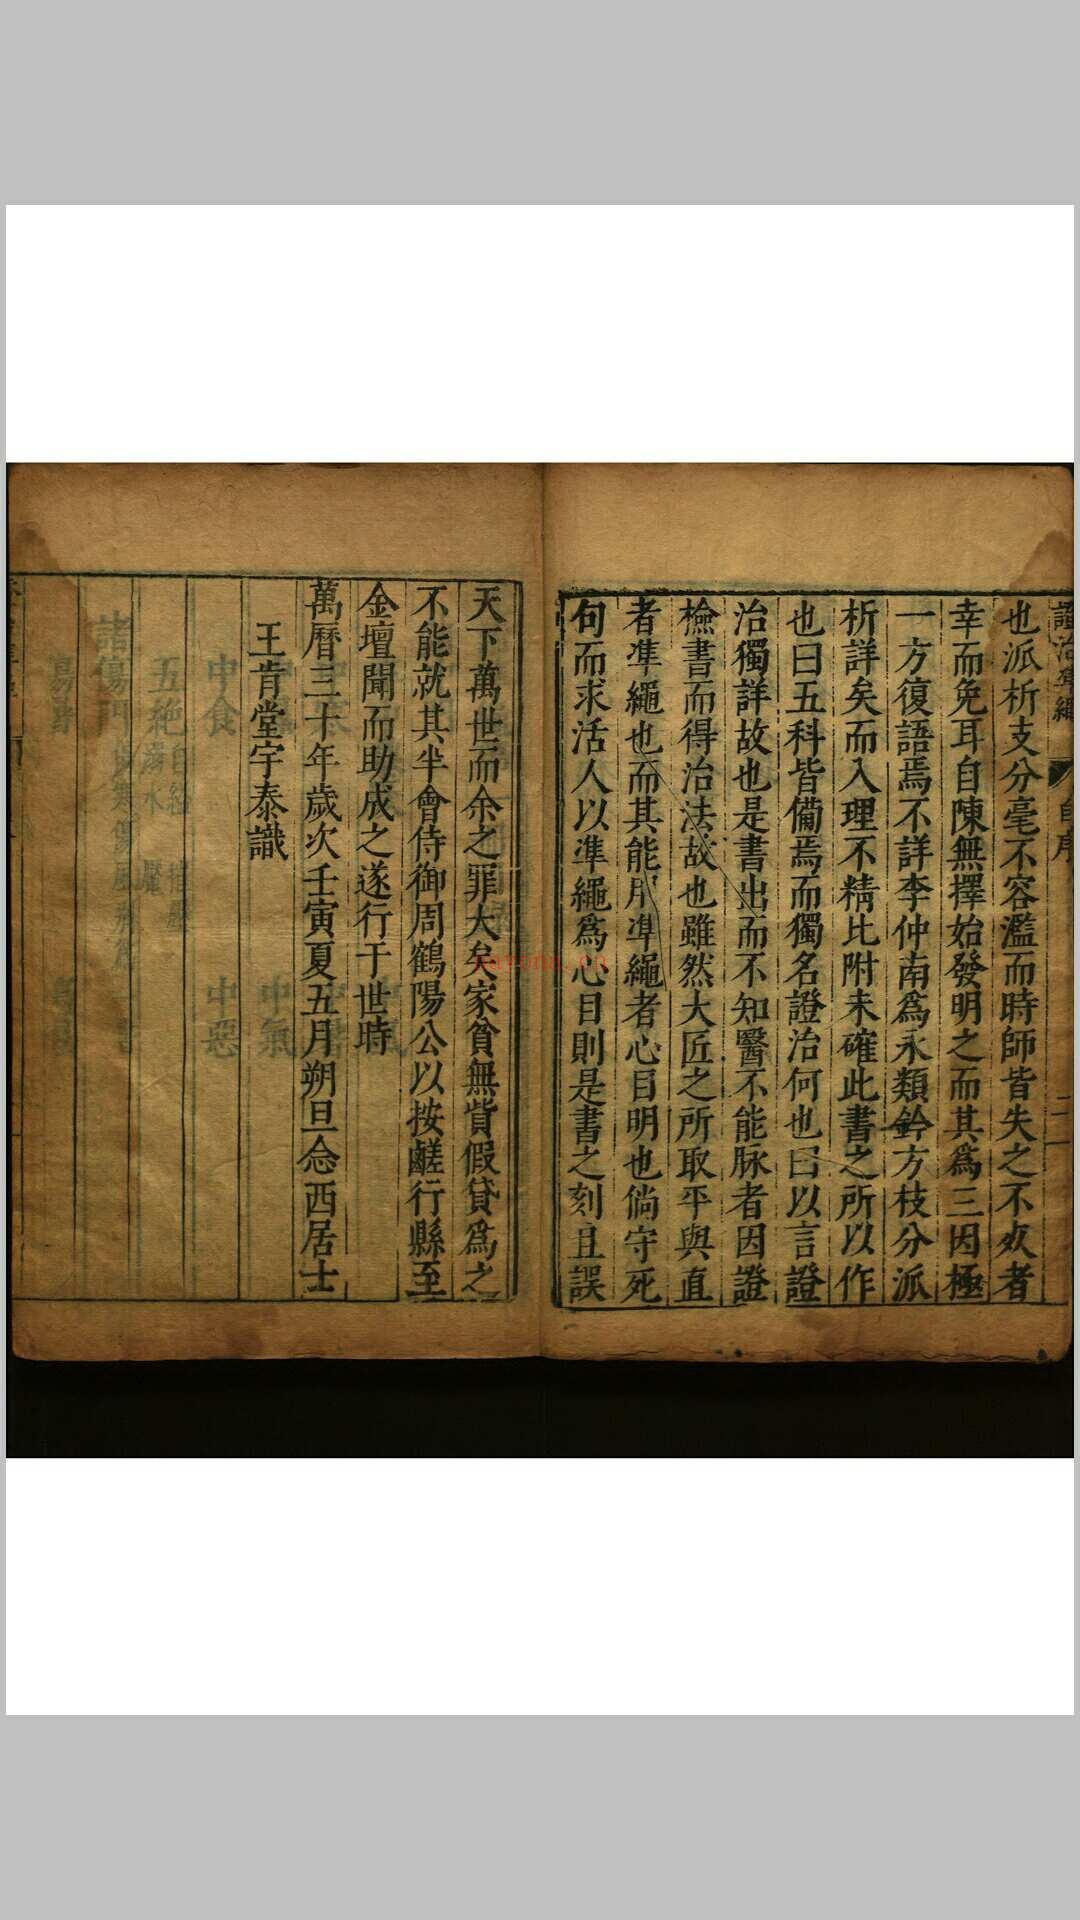 證治準繩 自序 二
也派析支分毫不容濫而時師皆失之不死者
幸而免耳自陳無擇始發明之而其為三因極
一方復語焉不詳李仲南為永類鈐方枝分派
析詳矣而入理不精比附未確此書之所以作
也曰五科皆備焉而獨名證治何也曰以言證
治獨詳故也是書出而不知醫不能脉者因證
檢書而得治法故也雖然大匠之所取平與直
者準繩也而其能用準繩者心目明也倘守死
句而求活人以準繩為心目則是書之刻且誤
天下萬世而余之罪大矣家貧無貲假貸為之
不能就其半會侍御周鶴陽公以按鹺行縣至
金壇聞而助成之遂行于世時
萬曆三十年歲次壬寅夏五月朔旦念西居士
王肯堂宇泰識